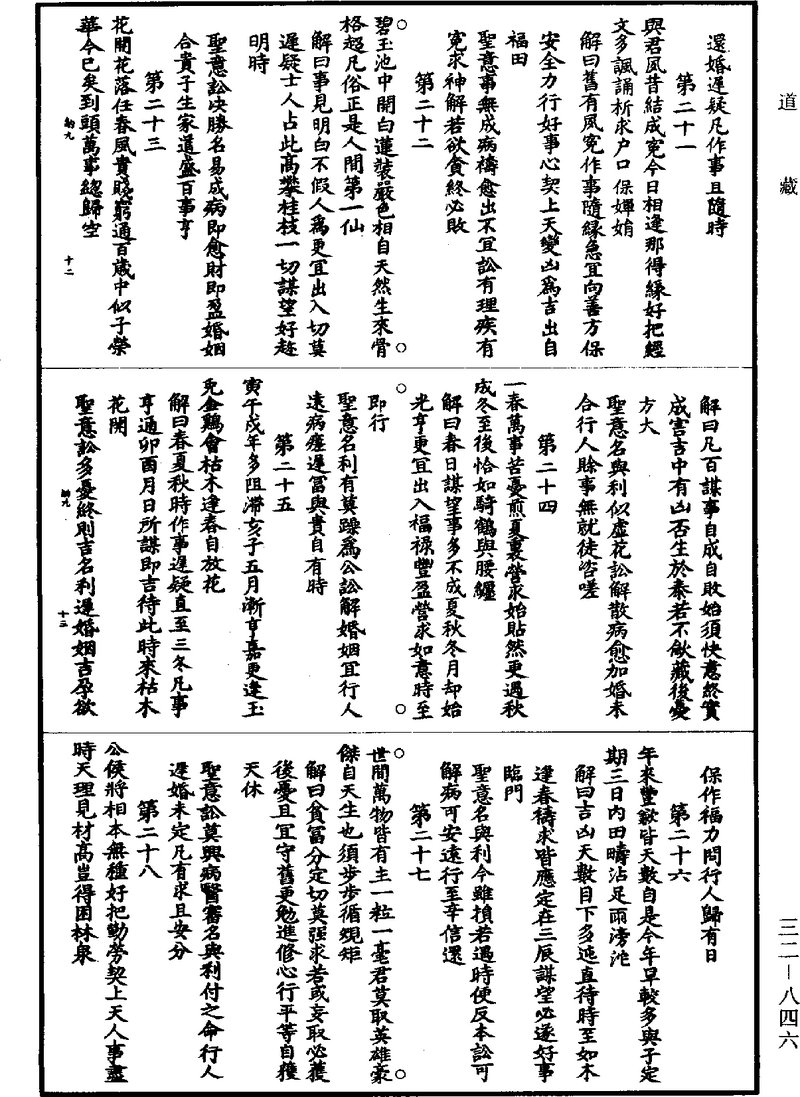 道藏
還婚遲疑凡作事且隨時
第二十一
與君夙昔結成冤今日相逢那得緣好把經
文多諷誦祈求户口保嬋娟
解曰舊有夙冤作事隨緣急宜向善方保
安全力行好事心契上天變凶爲吉出自
福田
聖意事無成病禱愈出不宜訟有理疾有
冤求神解若欲貪終必敗
第二十二
碧玉池中開白蓮裝嚴色相自天然生來骨
格超凡俗正是人間第一仙
解曰事見明白不假人爲更宜出入切莫
遲疑士人占此高攀桂枝一切謀望好趂
明時
聖意訟决勝名易成病即愈財即盈婚姻
合貴子生家道盛百事亨
第二十三
花開花落任春風貴賤窮通百歲中似子榮
華今已矣到頭萬事總歸空
訥九
十二
解曰凡百謀事自成自敗始須快意終實
成害吉中有凶否生於泰若不歛藏後憂
方大
聖意名與利似虛花訟解散病愈加婚未
合行人賒事無就徒咨嗟
第二十四
一春萬事苦憂煎夏裏營求始貼然更遇秋
成冬至後恰如騎鶴與腰纏
解曰春日謀望事多不成夏秋冬月却始
光亨更宜出入福祿豐盈營求如意時至
即行
聖意名利有莫躁爲公訟解婚姻宜行人
遠病瘥遲冨與貴自有時
第二十五
寅午戌年多阻滯亥子五月漸亨嘉更逢玉
兔金鷄會枯木逢春自放花
解曰春夏秋時作事遲疑直至三冬凡事
亨通卯酉月日所謀即吉待此時來枯木
花開
聖意訟多憂終則吉名利遲婚姻吉孕欲
訥九
十三
保作福力問行人歸有日
第二十六
年來豐歉皆天數自是今年旱較多與子定
期三日内田疇沾足雨滂沱
解曰吉凶天數目下多迍直待時至如木
逢春禱求皆應定在三辰謀望必遂好事
臨門
聖意名與利今雖損若遇時便反本訟可
解病可安遠行至辛信還
第二十七
世間萬物皆有主一粒一毫君莫取英雄豪
傑自天生也須步步循規矩
解曰貧冨分定切莫强求若或妄取必蒦
後憂且宜守舊更勉進修心行平等自獲
天休
聖意訟莫興病醫審名與利付之命行人
遲婚未定凡有求且安分
第二十八
公侯將相本無種好把勤勞契上天人事盡
時天理見材高豈得困林泉
三二—八四六